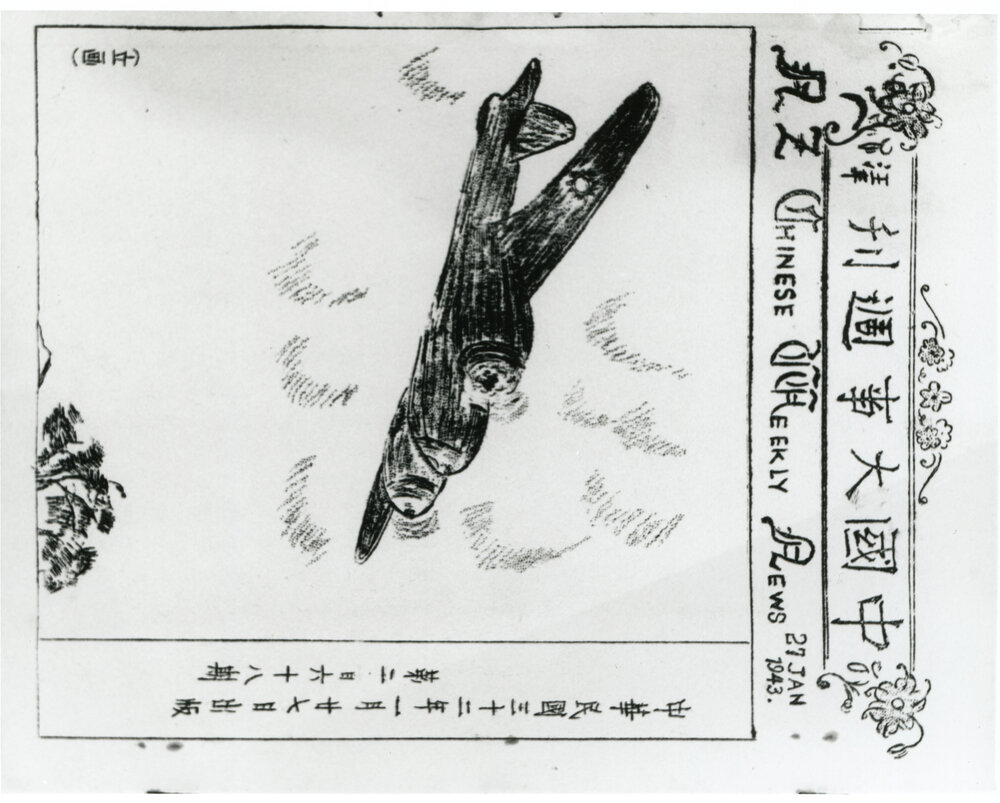 中國大事週刊
N Z CHINESE WEEKLY NEWS
27 JAN 1943.
(立画)
中華民國三十二年一月廿七日出版
第二百六十八期